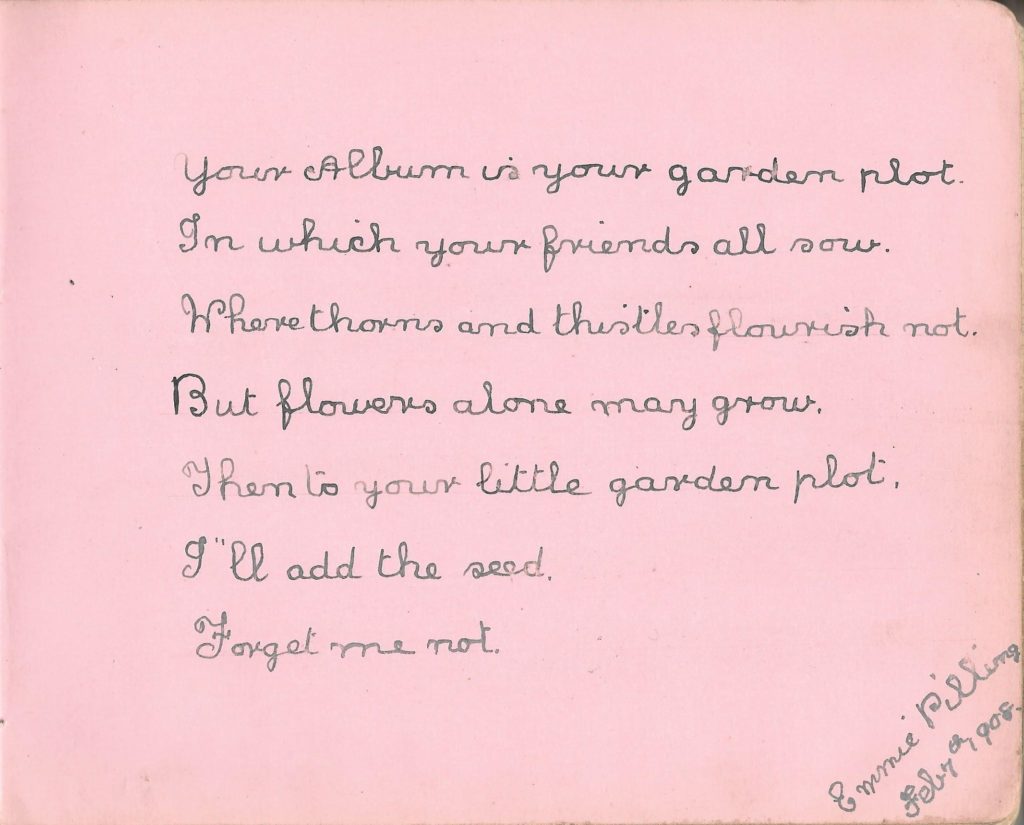 Your Album is your garden plot.
In which your friends all sow.
Where thorns and thistles flourish not.
But flowers alone may grow.
Then to your little garden plot,
I"ll add the seed.
Forget me not.
Emmie Pilling
Feb 7th, 1908.